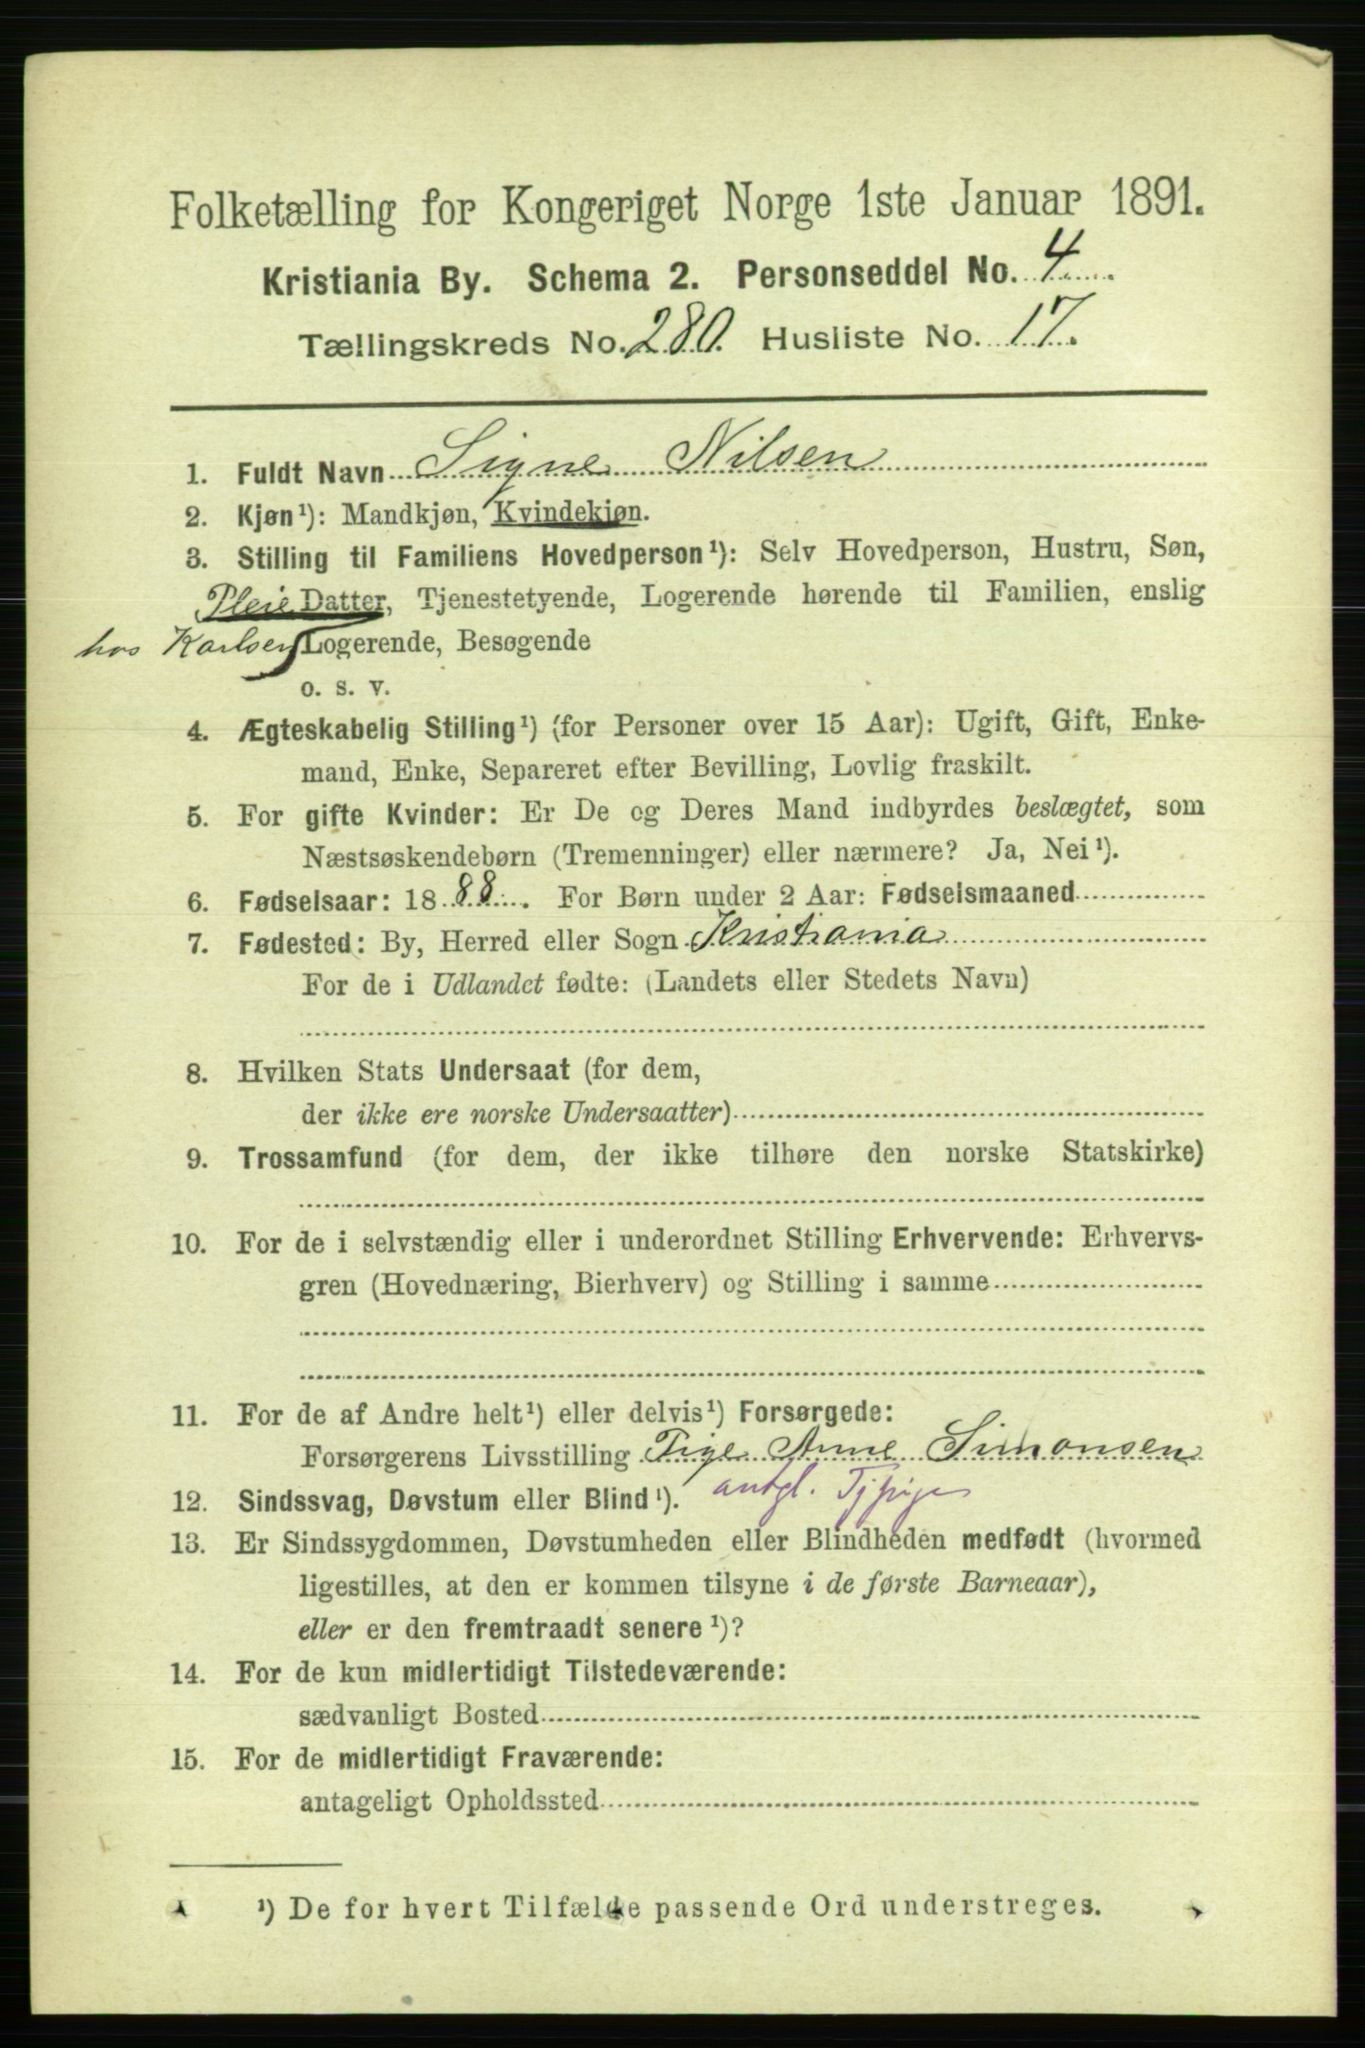 Folketælling for Kongeriget Norge 1ste Januar 1891.
Kristiania By. Schema 2. Personseddel No. 4
Tællingskreds No. 280. Husliste No. 17.
1. Fuldt Navn Signe Nilsen
2. Kjøn¹): Mandkjøn, Kvindekjøn.
3. Stilling til Familiens Hovedperson¹): Selv Hovedperson, Hustru, Søn,
Pleie Datter, Tjenestetyende, Logerende hørende til Familien, enslig
hos Karlsen Logerende, Besøgende
o. s. v.
4. Ægteskabelig Stilling¹) (for Personer over 15 Aar): Ugift, Gift, Enke-
mand, Enke, Separeret efter Bevilling, Lovlig fraskilt.
5. For gifte Kvinder: Er De og Deres Mand indbyrdes beslægtet, som
Næstsøskendebørn (Tremenninger) eller nærmere? Ja, Nei¹).
6. Fødselsaar: 1888. For Børn under 2 Aar: Fødselsmaaned
7. Fødested: By, Herred eller Sogn Kristiania
For de i Udlandet fødte: (Landets eller Stedets Navn)
8. Hvilken Stats Undersaat (for dem,
der ikke ere norske Undersaatter)
9. Trossamfund (for dem, der ikke tilhøre den norske Statskirke)
10. For de i selvstændig eller i underordnet Stilling Erhvervende: Erhvervs-
gren (Hovednæring, Bierhverv) og Stilling i samme
11. For de af Andre helt¹) eller delvis¹) Forsørgede:
Forsørgerens Livsstilling Pige Anne Simonsen
12. Sindssvag, Døvstum eller Blind¹). antgl. Tjpige
13. Er Sindssygdommen, Døvstumheden eller Blindheden medfødt (hvormed
ligestilles, at den er kommen tilsyne i de første Barneaar),
eller er den fremtraadt senere¹)?
14. For de kun midlertidigt Tilstedeværende:
sædvanligt Bosted
15. For de midlertidigt Fraværende:
antageligt Opholdssted
¹) De for hvert Tilfælde passende Ord understreges.